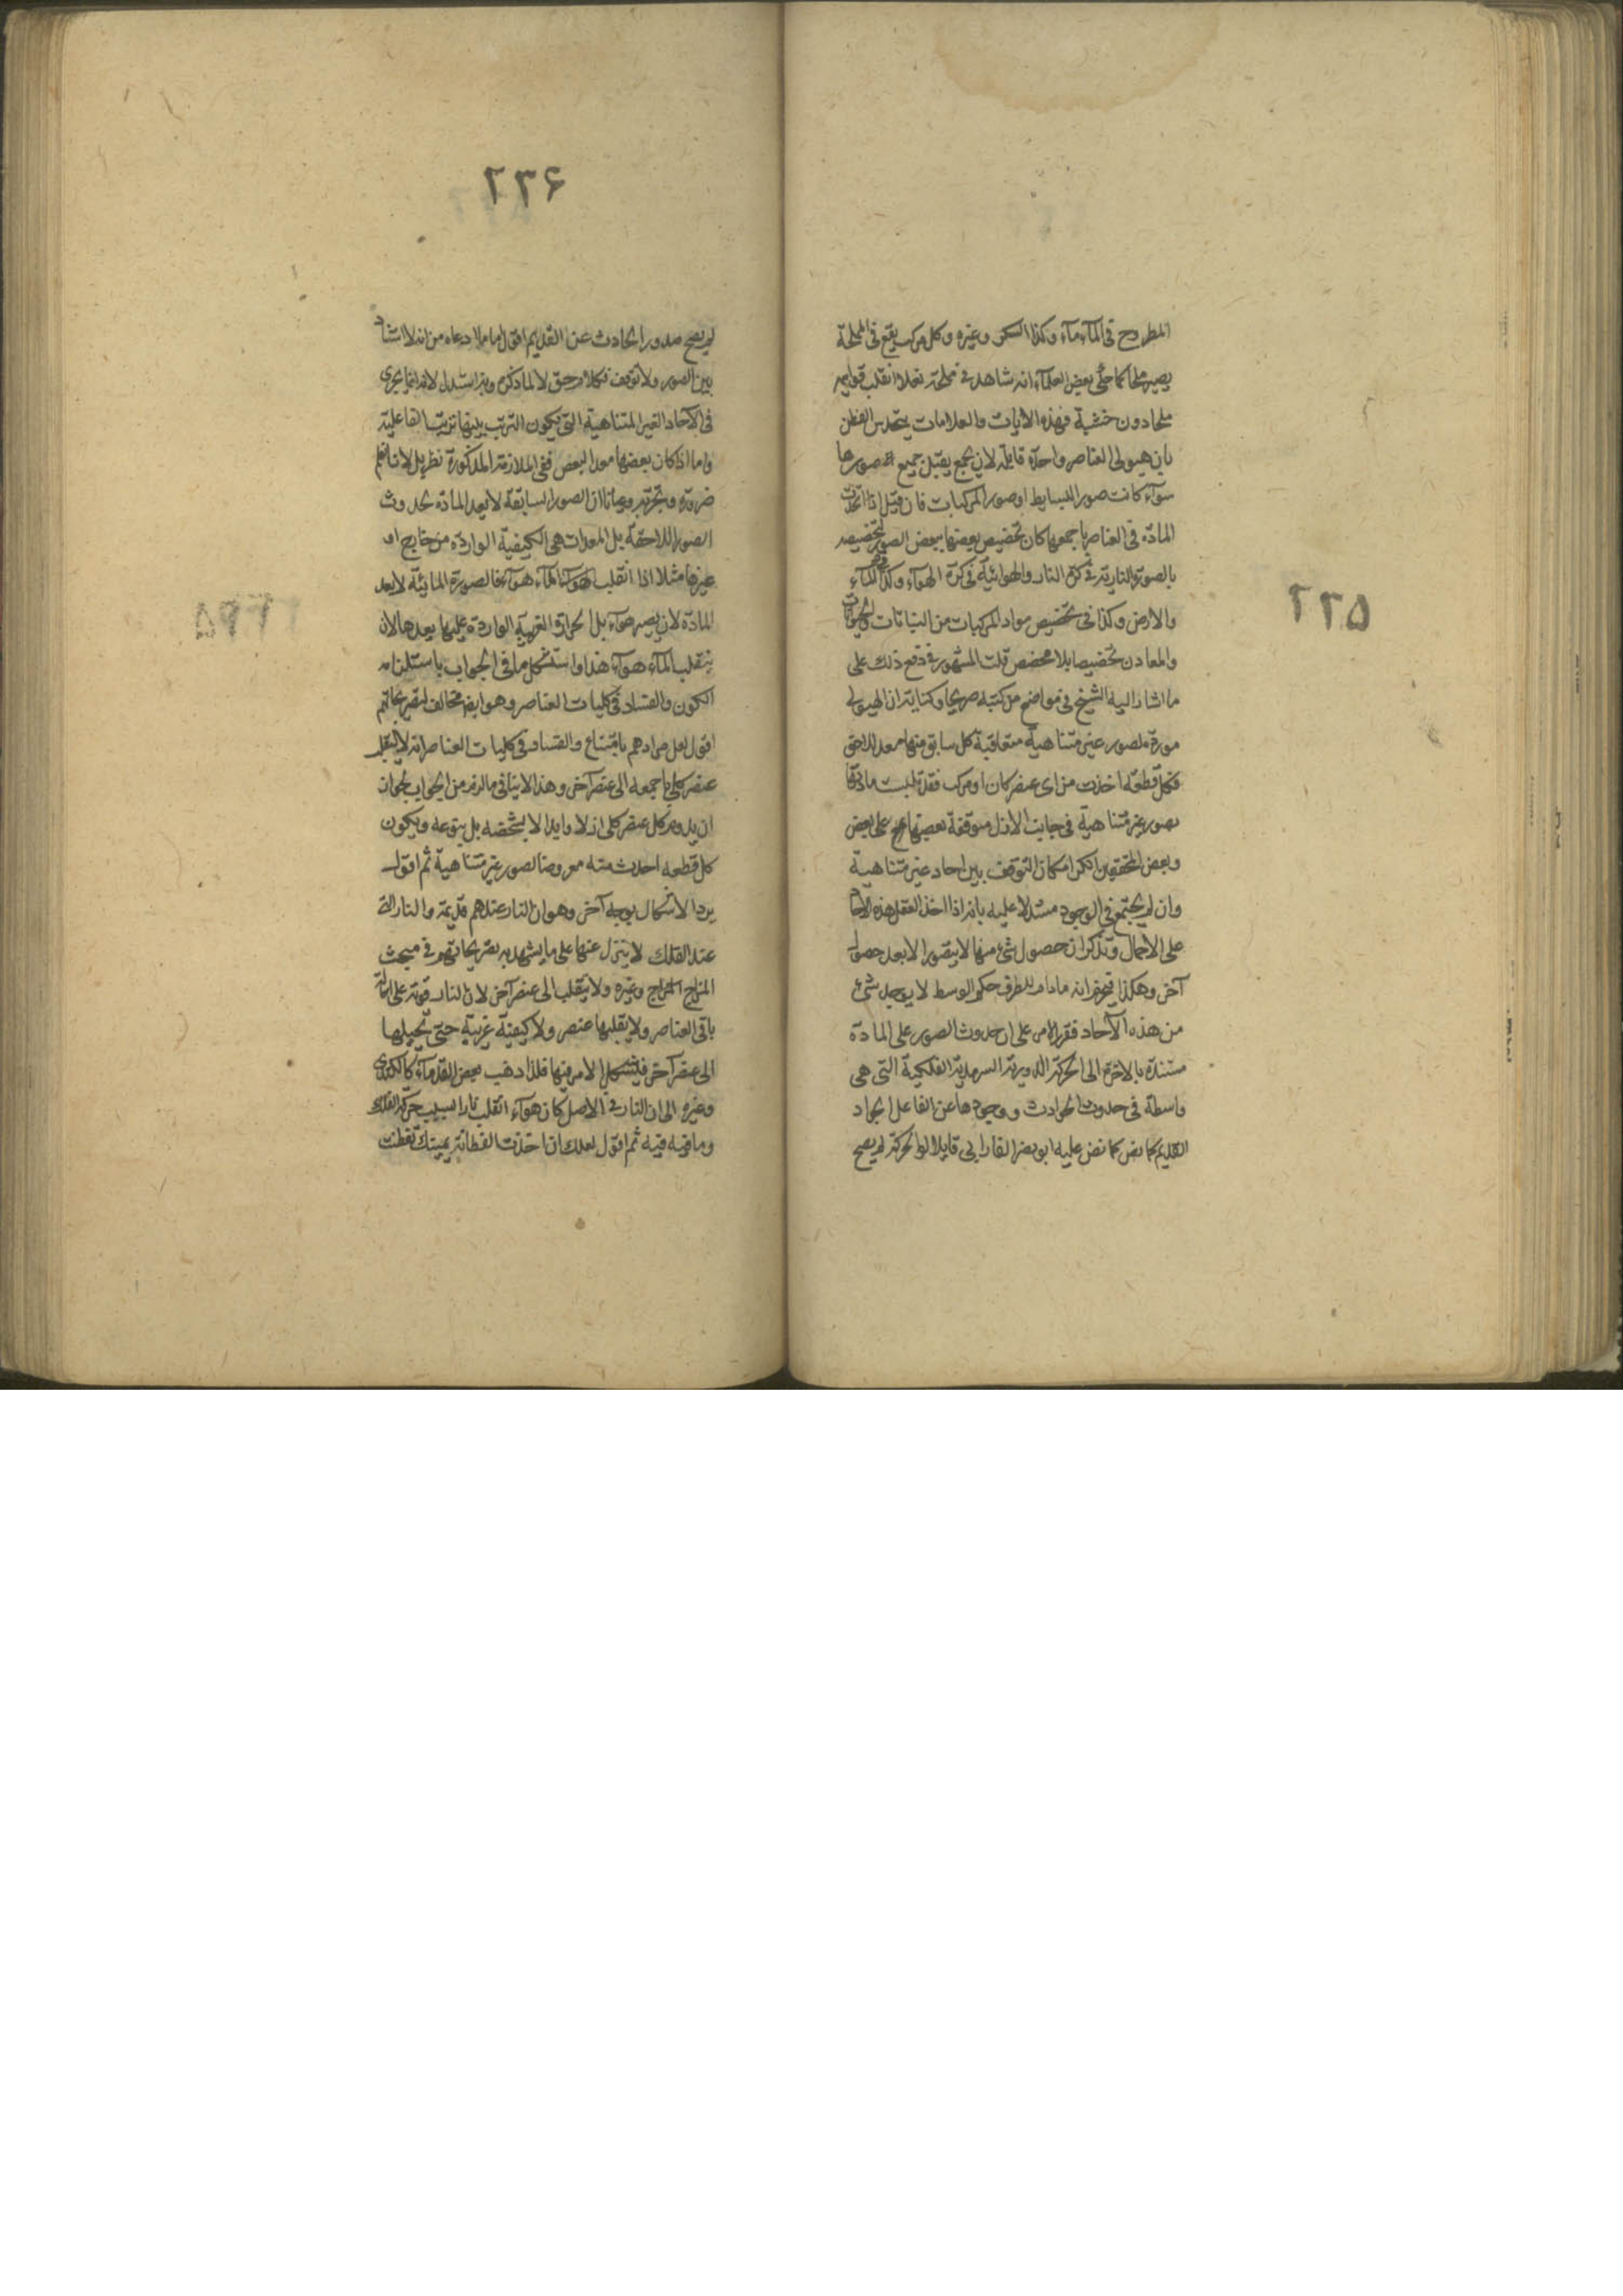 ٢٣٥
المطروح في المآء مآء وكذا السكر وغيره وكل مركب يقع في المملحة
يصير ملحا كما حكى بعض العلمآء انه شاهد في مملحة نعلا انقلب قوايمه
ملحا دون خشبة فهذه الايات والعلامات يتحدس الفطن
بان هيولى العناصر واحدة قابلة لان يجمع يقبل جميع صورها
سوآء كانت صور البسايط او صور المركبات فان قيل اذا اتحدت
المادة في العناصر باجمعها كان تخصيص بعضها ببعض الصور كتخصيصه
بالصورة النارية في كرة النار والهوائية في كرة الهوآء وكذا المآء
والارض وكذا في تخصيص مواد المركبات من النباتات والحيوانات
والمعادن تخصيصا بلا مخصص قلت المشهور في دفع ذلك على
ما اشار اليه الشيخ في مواضع من كتبه صريحا وكناية ان الهيولى
مورة لصور غير متناهية متعاقبة كل سابق منها معد للاحق
فكل قطعة اخذت من اى عنصر كان او مركب فقد تلبست مادتها
بصور غير متناهية في جانب الازل متوقفة بعضها على بعض
وبعض المحققين انكر امكان التوقف بين احاد غير متناهية
وان لم يجتمع في الوجود مستدلا عليه بانه اذا اخذ العقل هذه الآحاد
على الاجمال وتذكر ان حصول شئ منها لا يتصور الا بعد حصول
آخر وهكذا فيجزم انه مادام للطرف حكم الوسط لا يوجد شئ
من هذه الآحاد فقرر الامر على ان حدوث الصور على المادة
مستندة بالاخرة الى الحركة الدورية السرمدية الفلكية التي هي
واسطة في حدوث الحوادث ووجودها عن الفاعل الجواد
القديم كما نص كما نص عليه ابو نصر الفارابي قايلا لولا الحركة لم يصح
٢٣۶
لم يصح صدور الحادث عن القديم اقول اما ما ادعاه من انه لا استناد
بين الصور ولا توقف فكلام حق لا لما ذكره وبه استدل لانه انما يجرى
في الآحاد الغير المتناهية التي يكون الترتب بينها ترتب الفاعلية
واما اذا كان بعضها معد البعض ففي الملازمة المذكورة نظر بل لانا نعلم
ضرورة وتجربة وعيانا ان الصور السابقة لا يعد المادة بحدوث
الصور اللاحقة بل المعدات هي الكيفية الواردة من خارج او
غيرها مثلا اذا انقلب المآء هوآء فالصورة المائية لا يعد
المادة لان يصير هوآء بل الحرارة الغريبة الواردة عليها يعدها لان
ينقلب المآء هوآء هذا واستشكل ما في الجواب باستلزامه
الكون والفساد في كليات العناصر وهو ايضا مخالف لتصريحاتهم
اقول لعل مرادهم بامتناع والفساد في كليات العناصر انه لا ينقلب
عنصر كلي باجمعه الى عنصر آخر وهذا لا ينافي ما لزم من الجواب لجواز
ان يدوم كل عنصر كلى ازلا وابدا لا بشخصه بل بنوعه ويكون
كل قطعه احدث منه معروضا لصور غير متناهية ثم اقول
يرد الاشكال بوجه آخر وهو ان النار عندهم قديمة والنار التى
عند الفلك لا ينزل عنها على ما يشهد به تصريحاتهم في مبحث
المزاج المزاج وغيره ولا ينقلب الى عنصر آخر لان النار قوية على احالة
باقي العناصر ولا يقلبها عنصر ولا كيفية غريبة حتى تحيلها
الى عنصر آخر فيشكل الامر فيها فلذا ذهب بعض القدمآء كالكندى
وغيره الى ان النار في الاصل كان هوآء انقلب نارا بسبب حركة الفلك
وما فيه فيه ثم اقول لعلك ان اخذت الفطانة بيدك تفطنت